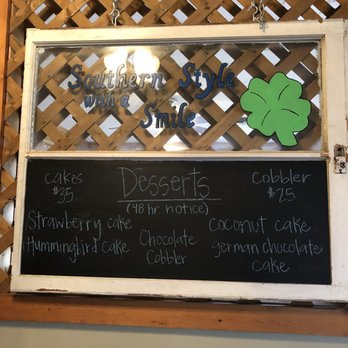 Southern Style
with a
Smile
cakes
$35
Desserts
(48 hr. notice)
cobbler
$25
Strawberry cake
Hummingbird cake
Chocolate
Cobbler
coconut cake
german chocolate
cake